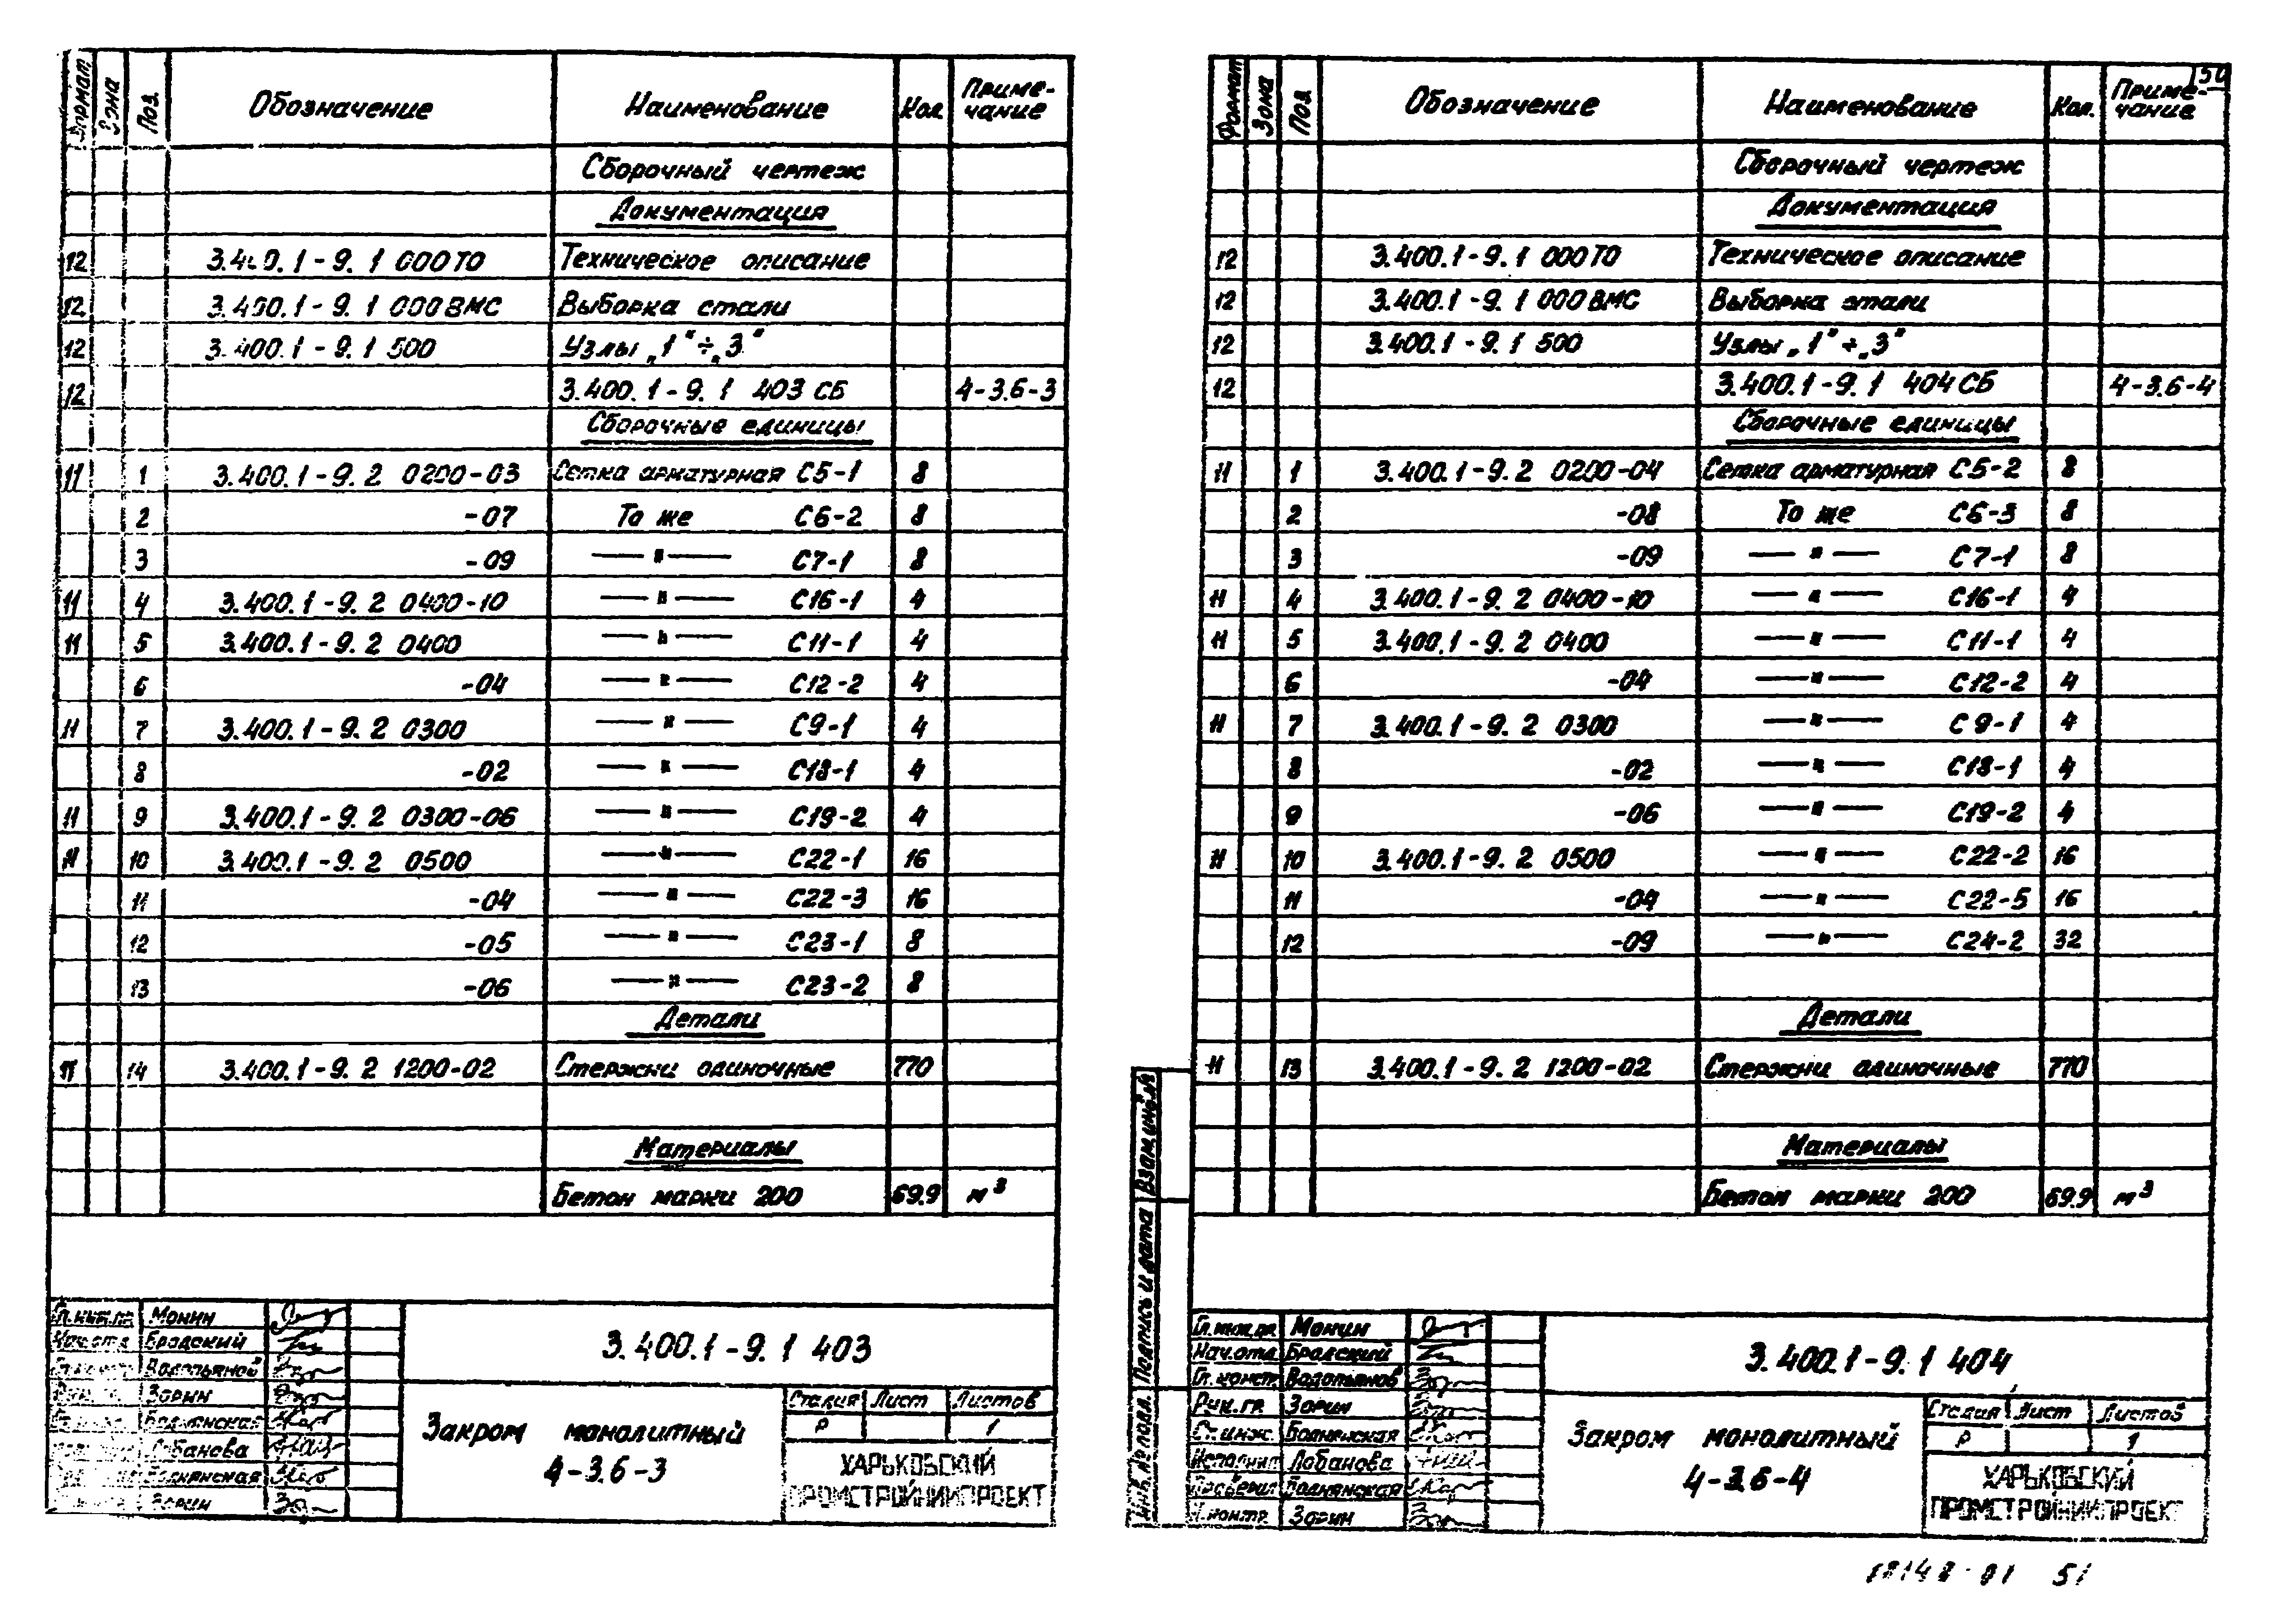 Формат Зона Поз. Обозначение Наименование Кол. Приме-
чание
Сборочный чертеж
Документация
12 3.400.1-9.1 000ТО Техническое описание
12 3.400.1-9.1 000ВМС Выборка стали
12 3.400.1-9.1 500 Узлы „1"÷„3"
12 3.400.1-9.1 403 СБ 4-3.6-3
Сборочные единицы
11 1 3.400.1-9.2 0200-03 Сетка арматурная С5-1 8
2 -07 То же С6-2 8
3 -09 — " — С7-1 8
11 4 3.400.1-9.2 0400-10 — " — С16-1 4
11 5 3.400.1-9.2 0400 — " — С11-1 4
6 -04 — " — С12-2 4
11 7 3.400.1-9.2 0300 — " — С9-1 4
8 -02 — " — С18-1 4
11 9 3.400.1-9.2 0300-06 — " — С19-2 4
11 10 3.400.1-9.2 0500 — " — С22-1 16
11 -04 — " — С22-3 16
12 -05 — " — С23-1 8
13 -06 — " — С23-2 8
Детали
11 14 3.400.1-9.2 1200-02 Стержни одиночные 770
Материалы
Бетон марки 200 69.9 м³
Гл.инж.пр. Монин
Нач.отд. Бродский
Водопьянов
Зорин
Болнянская
Лобанова
Болнянская
Зорин
3.400.1-9.1 403
Закром монолитный
4-3.6-3
Стадия Лист Листов
Р 1
ХАРЬКОВСКИЙ
ПРОМСТРОЙНИИПРОЕКТ
50
Формат Зона Поз. Обозначение Наименование Кол. Приме-
чание
Сборочный чертеж
Документация
12 3.400.1-9.1 000ТО Техническое описание
12 3.400.1-9.1 000ВМС Выборка стали
12 3.400.1-9.1 500 Узлы „1"÷„3"
12 3.400.1-9.1 404 СБ 4-3.6-4
Сборочные единицы
11 1 3.400.1-9.2 0200-04 Сетка арматурная С5-2 8
2 -08 То же С6-3 8
3 -09 — " — С7-1 8
11 4 3.400.1-9.2 0400-10 — " — С16-1 4
11 5 3.400.1-9.2 0400 — " — С11-1 4
6 -04 — " — С12-2 4
11 7 3.400.1-9.2 0300 — " — С9-1 4
8 -02 — " — С18-1 4
9 -06 — " — С19-2 4
11 10 3.400.1-9.2 0500 — " — С22-2 16
11 -04 — " — С22-5 16
12 -09 — " — С24-2 32
Детали
11 13 3.400.1-9.2 1200-02 Стержни одиночные 770
Материалы
Бетон марки 200 69.9 м³
Инв.№ подл. Подпись и дата Взам.инв.№
Гл.инж.пр. Монин
Нач.отд. Бродский
Гл.констр. Водопьянов
Рук.гр. Зорин
Ст.инж. Болнянская
Исполнил Лобанова
Проверил Болнянская
Н.контр. Зорин
3.400.1-9.1 404
Закром монолитный
4-3.6-4
Стадия Лист Листов
Р 1
ХАРЬКОВСКИЙ
ПРОМСТРОЙНИИПРОЕКТ
18148-01 51